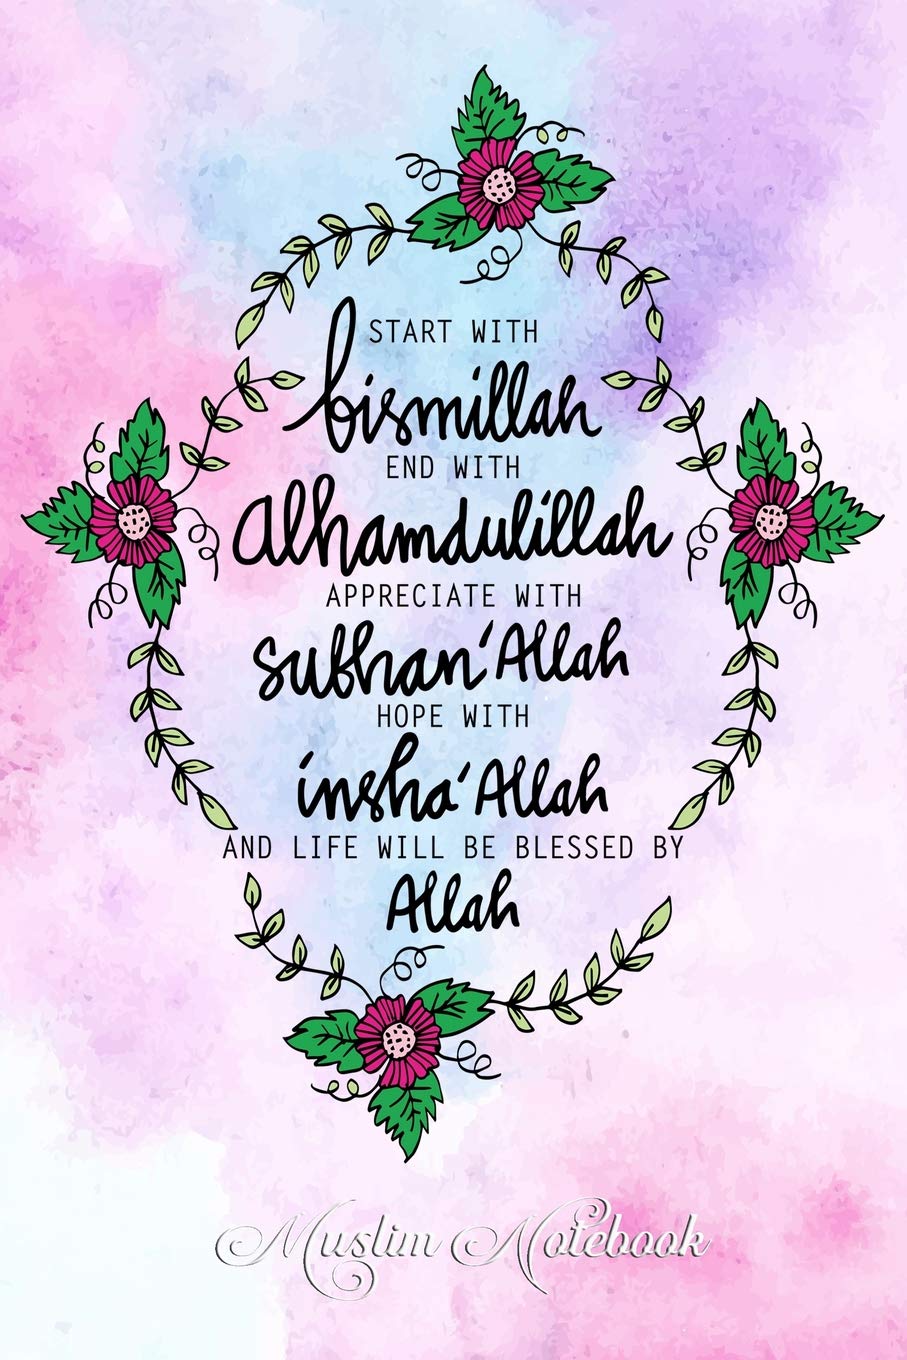 START WITH
bismillah
END WITH
Alhamdulillah
APPRECIATE WITH
Subhan'Allah
HOPE WITH
insha'Allah
AND LIFE WILL BE BLESSED BY
Allah
Muslim Notebook